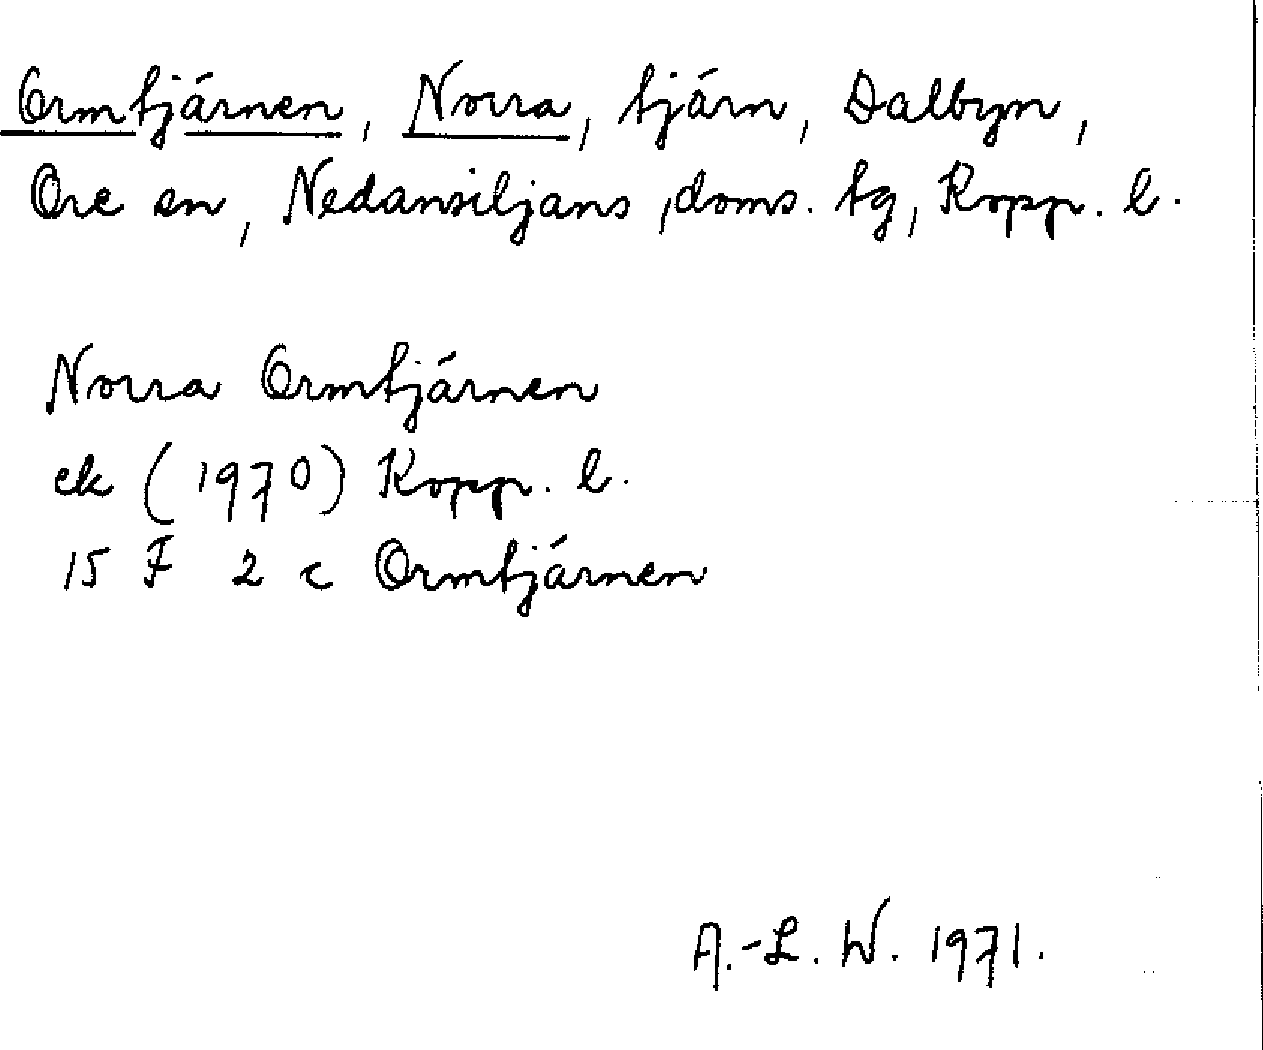 Ormtjärnen, Norra, tjärn, Dalbyn,
Ore sn, Nedansiljans doms. tg, Kopp. l.
Norra Ormtjärnen
ek (1970) Kopp. l.
15 F 2 c Ormtjärnen
A.-L. W. 1971.